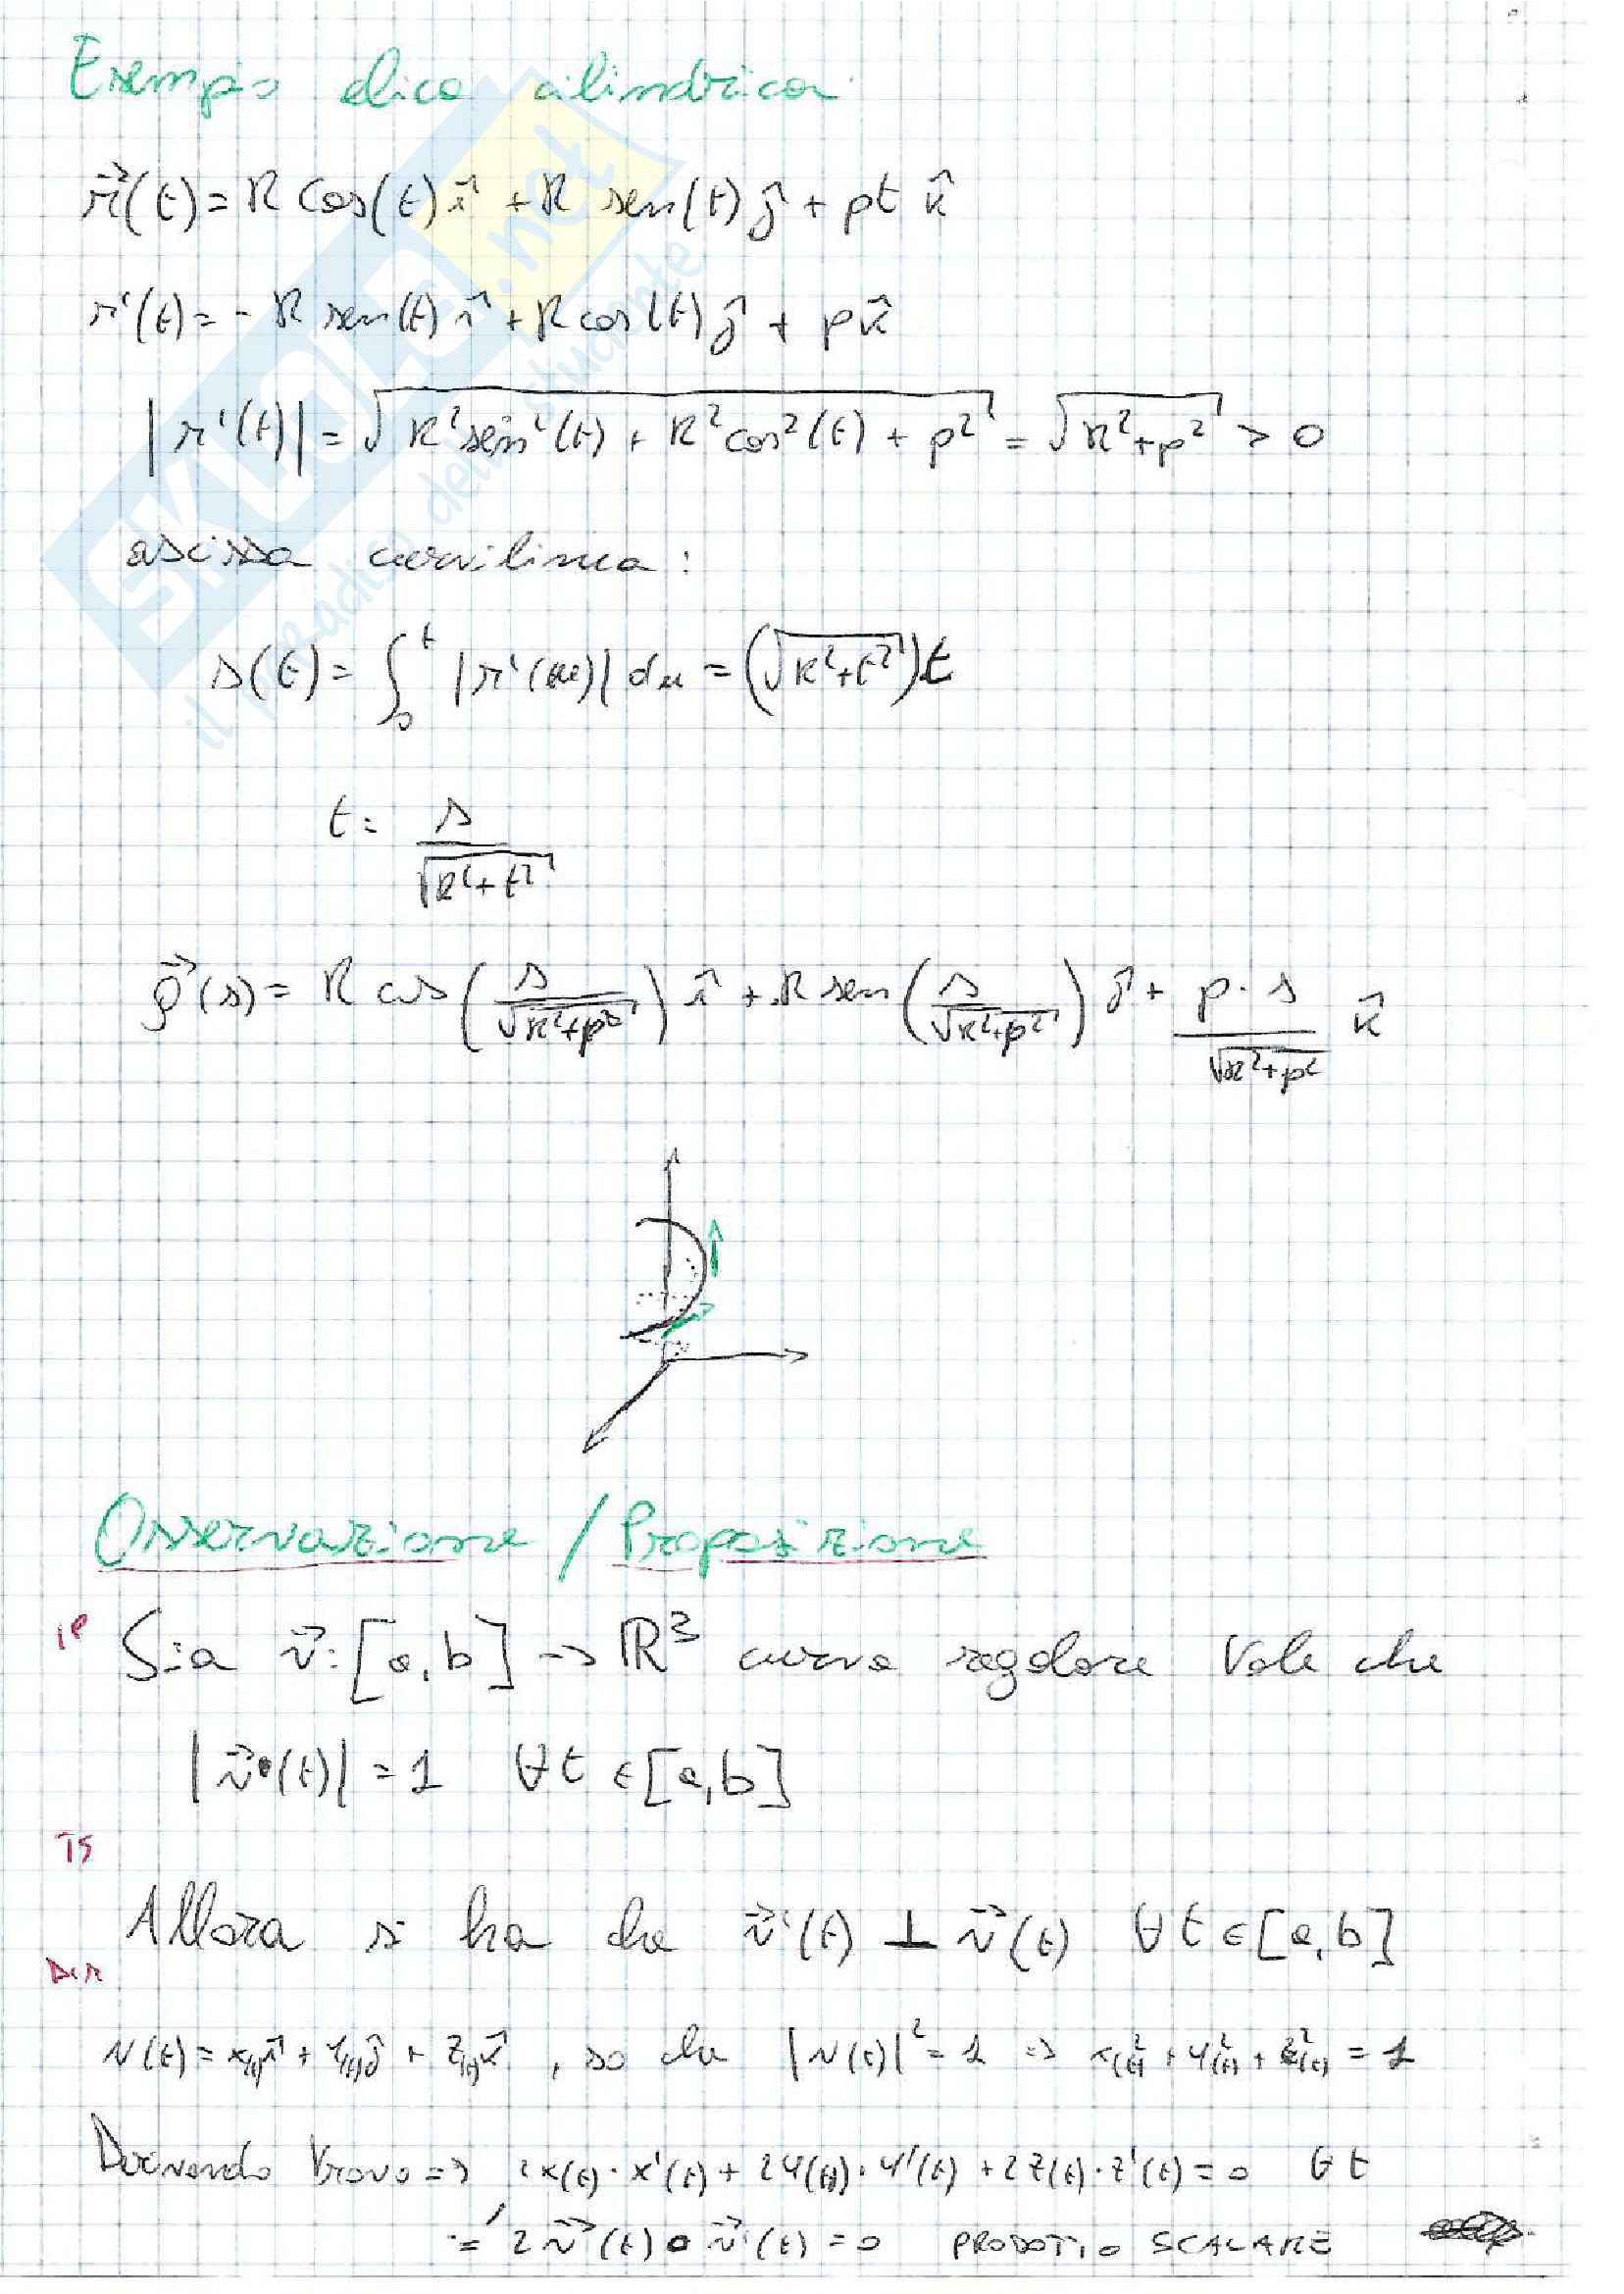 Esempio elica cilindrica
r⃗(t) = R cos(t) î + R sen(t) ĵ + pt k̂
r'(t) = - R sen(t) î + R cos(t) ĵ + p k̂
|r'(t)| = √(R² sen²(t) + R² cos²(t) + p²) = √(R² + p²) > 0
ascissa curvilinea:
s(t) = ∫₀ᵗ |r'(u)| du = (√(R² + t²)) t
t = s / √(R² + t²)
ρ⃗(s) = R cos(s / √(R² + p²)) î + R sen(s / √(R² + p²)) ĵ + p · s / √(R² + p²) k̂
Osservazione / Proposizione
IP Sia v⃗: [a,b] → ℝ³ curva regolare Vale che
|v⃗(t)| = 1 ∀t ∈ [a,b]
TS
Allora si ha che v⃗'(t) ⊥ v⃗(t) ∀t ∈ [a,b]
DIM
v(t) = x(t) î + y(t) ĵ + z(t) k̂, so che |v(t)|² = 1 ⇒ x(t)² + y(t)² + z(t)² = 1
Derivando trovo ⇒ 2x(t) · x'(t) + 2y(t) · y'(t) + 2z(t) · z'(t) = 0 ∀t
= 2 v⃗'(t) ∘ v⃗(t) = 0 PRODOTTO SCALARE
SKUOLA.net
il paradiso dello studente